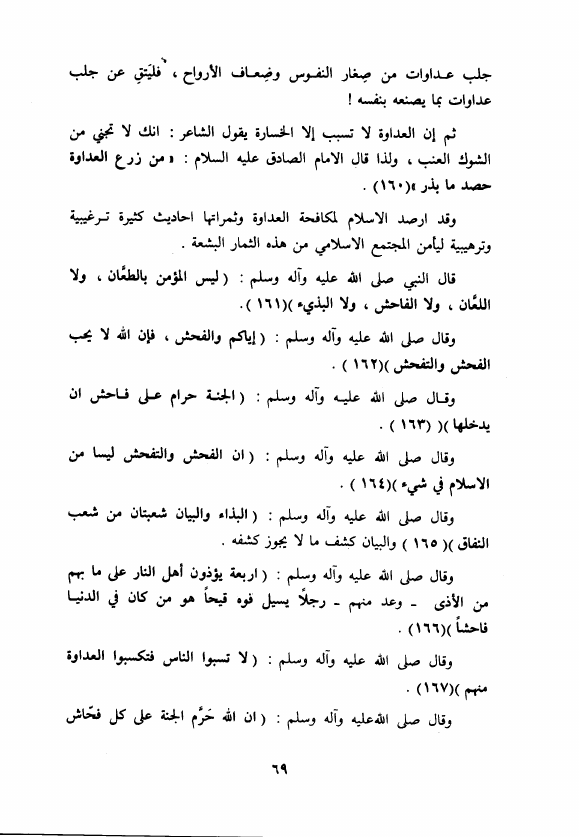 جلب عداوات من صِغار النفوس وضِعاف الأرواح ، فليَتقِ عن جلب
عداوات بما يصنعه بنفسه !
ثم إن العداوة لا تسبب إلا الخسارة يقول الشاعر : انك لا تجني من
الشوك العنب ، ولذا قال الامام الصادق عليه السلام : « من زرع العداوة
حصد ما بذر »(١٦٠) .
وقد ارصد الاسلام لمكافحة العداوة وثمراتها احاديث كثيرة ترغيبية
وترهيبية ليأمن المجتمع الاسلامي من هذه الثمار البشعة .
قال النبي صلى الله عليه وآله وسلم : ( ليس المؤمن بالطعَّان ، ولا
اللعَّان ، ولا الفاحش ، ولا البذيء )(١٦١ ).
وقال صلى الله عليه وآله وسلم : ( إياكم والفحش ، فإن الله لا يحب
الفحش والتفحش )(١٦٢ ) .
وقال صلى الله عليه وآله وسلم : ( الجنة حرام على فاحش ان
يدخلها )( (١٦٣ ) .
وقال صلى الله عليه وآله وسلم : ( ان الفحش والتفحش ليسا من
الاسلام في شيء )(١٦٤ ) .
وقال صلى الله عليه وآله وسلم : ( البذاء والبيان شعبتان من شعب
النفاق )( ١٦٥ ) والبيان كشف ما لا يجوز كشفه .
وقال صلى الله عليه وآله وسلم : ( اربعة يؤذون أهل النار على ما بهم
من الأذى ـ وعد منهم ـ رجلًا يسيل فوه قيحاً هو من كان في الدنيا
فاحشاً )(١٦٦) .
وقال صلى الله عليه وآله وسلم : ( لا تسبوا الناس فتكسبوا العداوة
منهم )(١٦٧) .
وقال صلى الله عليه وآله وسلم : ( ان الله حَرَّم الجنة على كل فحّاش
٦٩